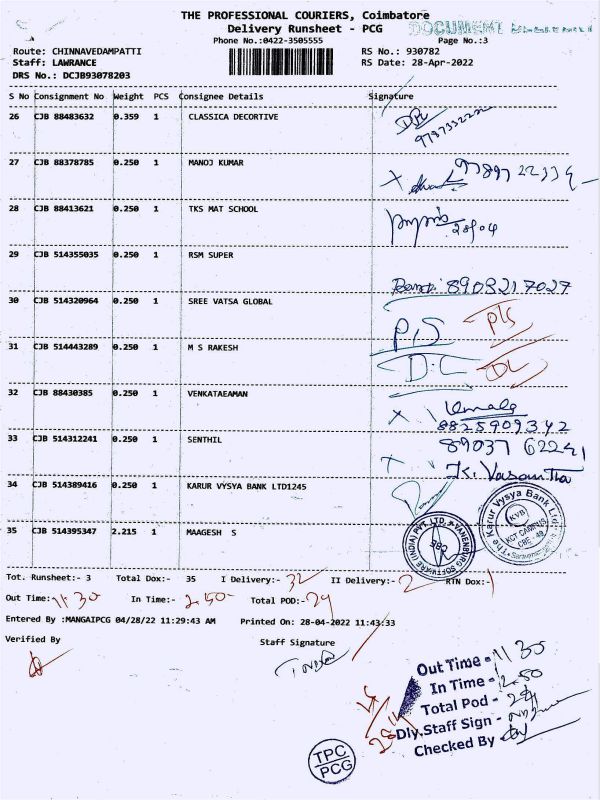 THE PROFESSIONAL COURIERS, Coimbatore
DOCUMENT
Delivery Runsheet - PCG
Phone No.:0422-3505555
Page No.:3
Route: CHINNAVEDAMPATTI
RS No.: 930782
Staff: LAWRANCE
RS Date: 28-Apr-2022
DRS No.: DCJB93078203
S No Consignment No Weight PCS Consignee Details Signature
26 CJB 88483632 0.359 1 CLASSICA DECORTIVE
27 CJB 88378785 0.250 1 MANOJ KUMAR
28 CJB 88413621 0.250 1 TKS MAT SCHOOL
28/04
29 CJB 514355035 0.250 1 RSM SUPER
8903217027
30 CJB 514320964 0.250 1 SREE VATSA GLOBAL
P,S
31 CJB 514443289 0.250 1 M S RAKESH
D.L DL
32 CJB 88430385 0.250 1 VENKATAEAMAN
8825909342
33 CJB 514312241 0.250 1 SENTHIL
89037 62241
K. Vasantha
34 CJB 514389416 0.250 1 KARUR VYSYA BANK LTD1245
The Karur Vysya Bank Ltd.
KVB
KCT CAMPUS
CBE - 49
35 CJB 514395347 2.215 1 MAAGESH S
VANENBURG SOFTWARE (INDIA) PVT. LTD.
CBE
Tot. Runsheet:- 3 Total Dox:- 35 I Delivery:- 32 II Delivery:- 2 RTN Dox:- 1
Out Time:- 11 30 In Time:- 2.50 Total POD:- 29
Entered By :MANGAIPCG 04/28/22 11:29:43 AM Printed On: 28-04-2022 11:43:33
Verified By
Staff Signature
Out Time - 11 30
In Time - 2.50
Total Pod - 29
Dly.Staff Sign -
Checked By
TPC
PCG